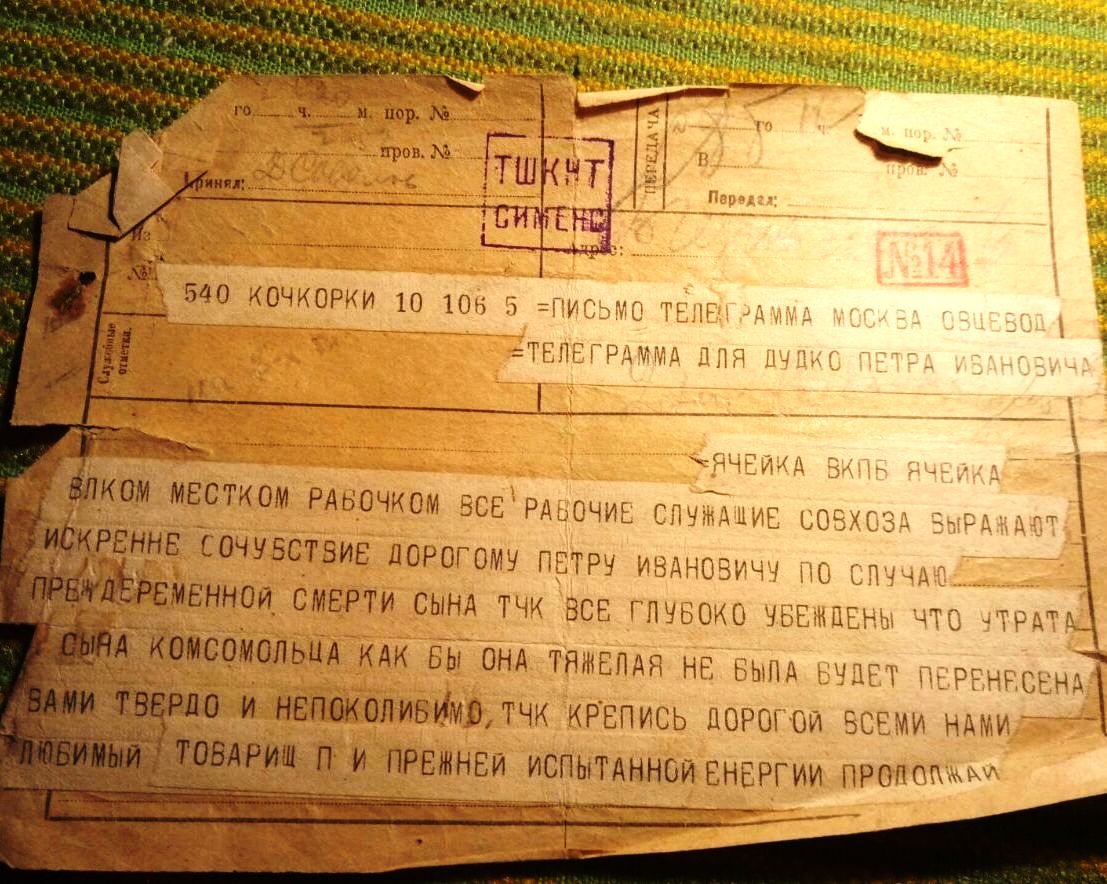 го ч. м. пор. №
пров. №
Принял:
ТШКНТ
СИМЕНС
ПЕРЕДАЧА
го ч. м. пор. №
В пров. №
Передал:
Из
Адрес:
№
№14
Служебные
отметки.
540 КОЧКОРКИ 10 106 5 =ПИСЬМО ТЕЛЕГРАММА МОСКВА ОВЦЕВОД
=ТЕЛЕГРАММА ДЛЯ ДУДКО ПЕТРА ИВАНОВИЧА
=ЯЧЕЙКА ВКПБ ЯЧЕЙКА
ВЛКОМ МЕСТКОМ РАБОЧКОМ ВСЕ РАБОЧИЕ СЛУЖАЩИЕ СОВХОЗА ВЫРАЖАЮТ
ИСКРЕННЕ СОЧУВСТВИЕ ДОРОГОМУ ПЕТРУ ИВАНОВИЧУ ПО СЛУЧАЮ
ПРЕЖДЕРЕМЕННОЙ СМЕРТИ СЫНА ТЧК ВСЕ ГЛУБОКО УБЕЖДЕНЫ ЧТО УТРАТА
СЫНА КОМСОМОЛЬЦА КАК БЫ ОНА ТЯЖЕЛАЯ НЕ БЫЛА БУДЕТ ПЕРЕНЕСЕНА
ВАМИ ТВЕРДО И НЕПОКОЛИБИМО, ТЧК КРЕПИСЬ ДОРОГОЙ ВСЕМИ НАМИ
ЛЮБИМЫЙ ТОВАРИЩ П И ПРЕЖНЕЙ ИСПЫТАННОЙ ЕНЕРГИИ ПРОДОЛЖАЙ